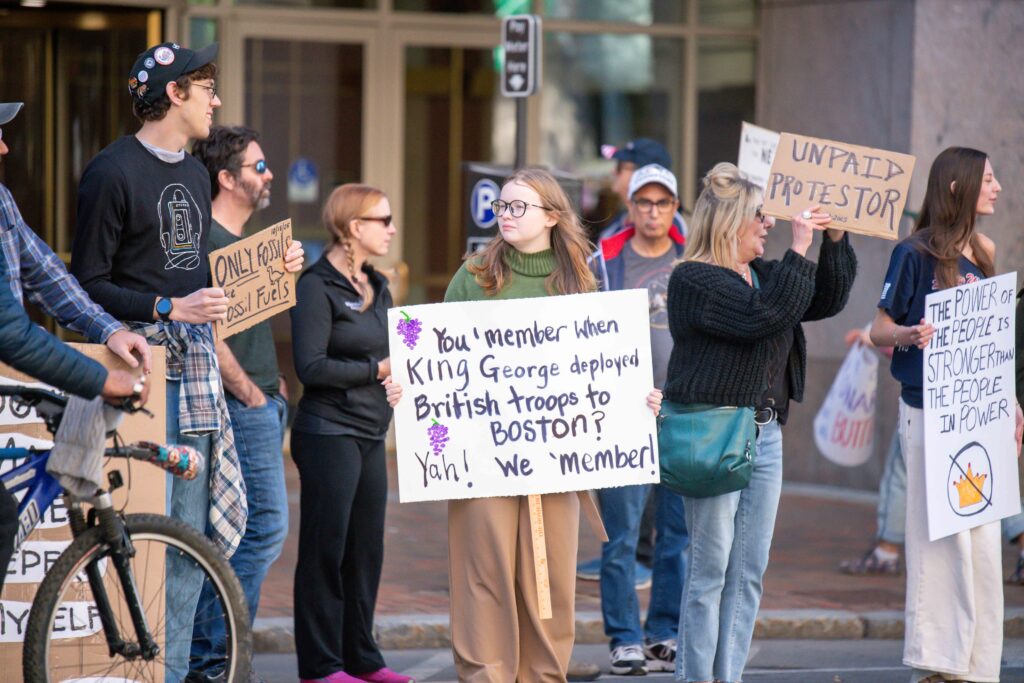 Pay
Meter
Here
P
UNPAID
PROTESTOR
ONLY FOSSILS
Fossil Fuels
You 'member when
King George deployed
British troops to
BOSTON?
Yah! We 'member!
THE POWER OF
THE PEOPLE IS
STRONGER THAN
THE PEOPLE
IN POWER
MYSELF